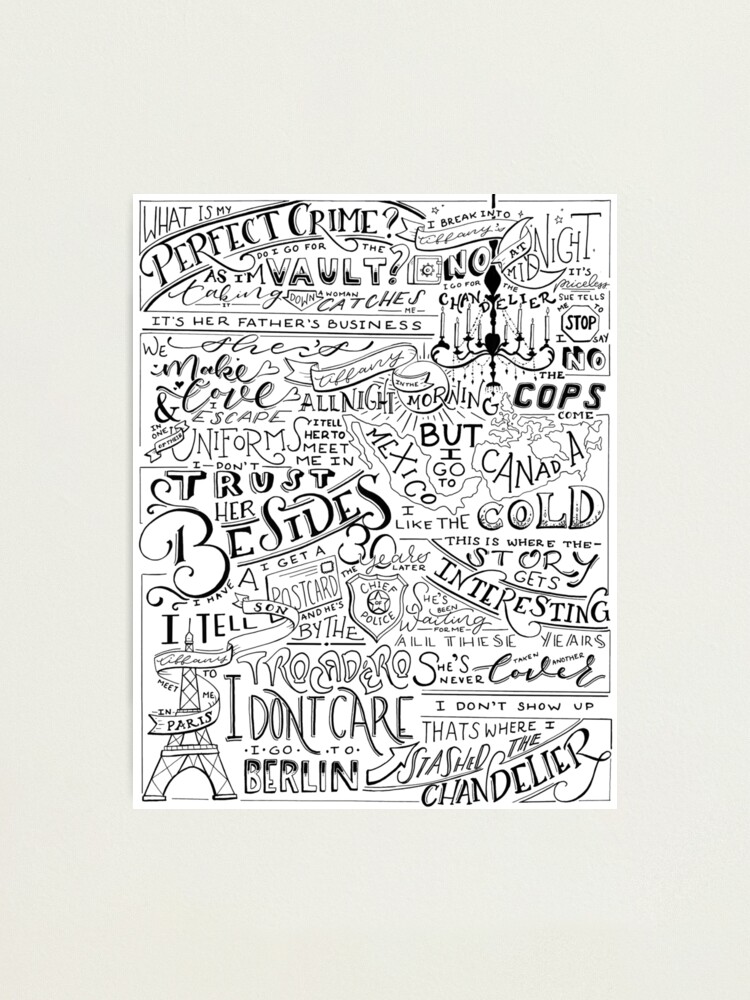 WHAT IS MY
PERFECT CRIME?
I BREAK INTO
tiffany's
AT
MIDNIGHT.
DO I GO FOR THE
VAULT?
NO
I GO FOR THE
CHANDELIER
IT'S
priceless
AS I'M
taking
IT
DOWN A
WOMAN
CATCHES
ME
SHE TELLS
ME TO
STOP
IT'S HER FATHER'S BUSINESS
she's
tiffany
I SAY
NO
WE
make
love
ALL NIGHT
IN THE
MORNING
THE
COPS
COME
&
I
ESCAPE
IN
ONE
OF THEIR
UNIFORMS
I TELL
HER TO
MEET
ME IN
MEXICO
BUT
I
GO
TO
CANADA
I DON'T
TRUST
HER
BESIDES
I
LIKE THE
COLD
30
years
LATER
I GET A
POSTCARD
I HAVE A
SON
AND HE'S
THE
CHIEF
POLICE
THIS IS WHERE THE
STORY
GETS
INTERESTING
I TELL
tiffany
TO
MEET
ME
IN
PARIS
BY THE
TROCADERO
SHE'S
BEEN
waiting
FOR ME
ALL THESE YEARS
SHE'S
NEVER
TAKEN
ANOTHER
lover
I DONT CARE
I DON'T SHOW UP
I GO TO
BERLIN
THATS WHERE I
STASHED
THE
CHANDELIER